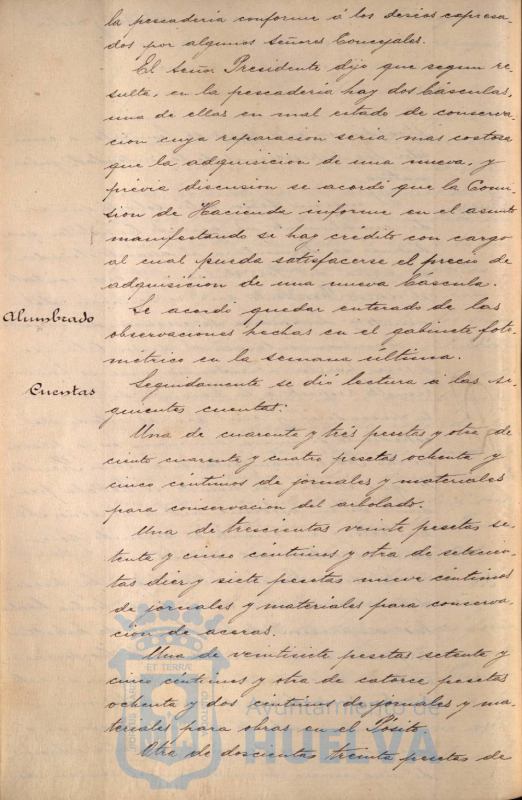 la pescaderia conforme á los deseos expresa-
dos por algunos Señores Concejales.
El Señor Presidente dijo que segun re-
sulta, en la pescadería hay dos básculas,
una de ellas en mal estado de conserva-
cion cuya reparacion seria mas costosa
que la adquisicion de una nueva, y
prévia discusion se acordó que la Comi-
sion de Hacienda informe en el asunto
manifestando si hay crédito con cargo
al cual pueda satisfacerse el precio de
adquisicion de una nueva báscula.
Alumbrado
Se acordó quedar enterado de las
observaciones hechas en el gabinete foto-
métrico en la semana última.
Cuentas
Seguidamente se dió lectura á las si-
guientes cuentas:
Una de cuarenta y trés pesetas y otra de
ciento cuarenta y cuatro pesetas ochenta y
cinco céntimos de jornales y materiales
para conservacion del arbolado.
Una de trescientas veinte pesetas se-
tenta y cinco céntimos y otra de setecien-
tas diez y siete pesetas nueve céntimos
de jornales y materiales para conserva-
cion de aceras.
Una de veintisiete pesetas setenta y
cinco céntimos y otra de catorce pesetas
ochenta y dos centimos de jornales y ma-
teriales para obras en el Pósito.
Otra de doscientas treinta pesetas de
ET TERRÆ
Ayuntamiento de
HUELVA